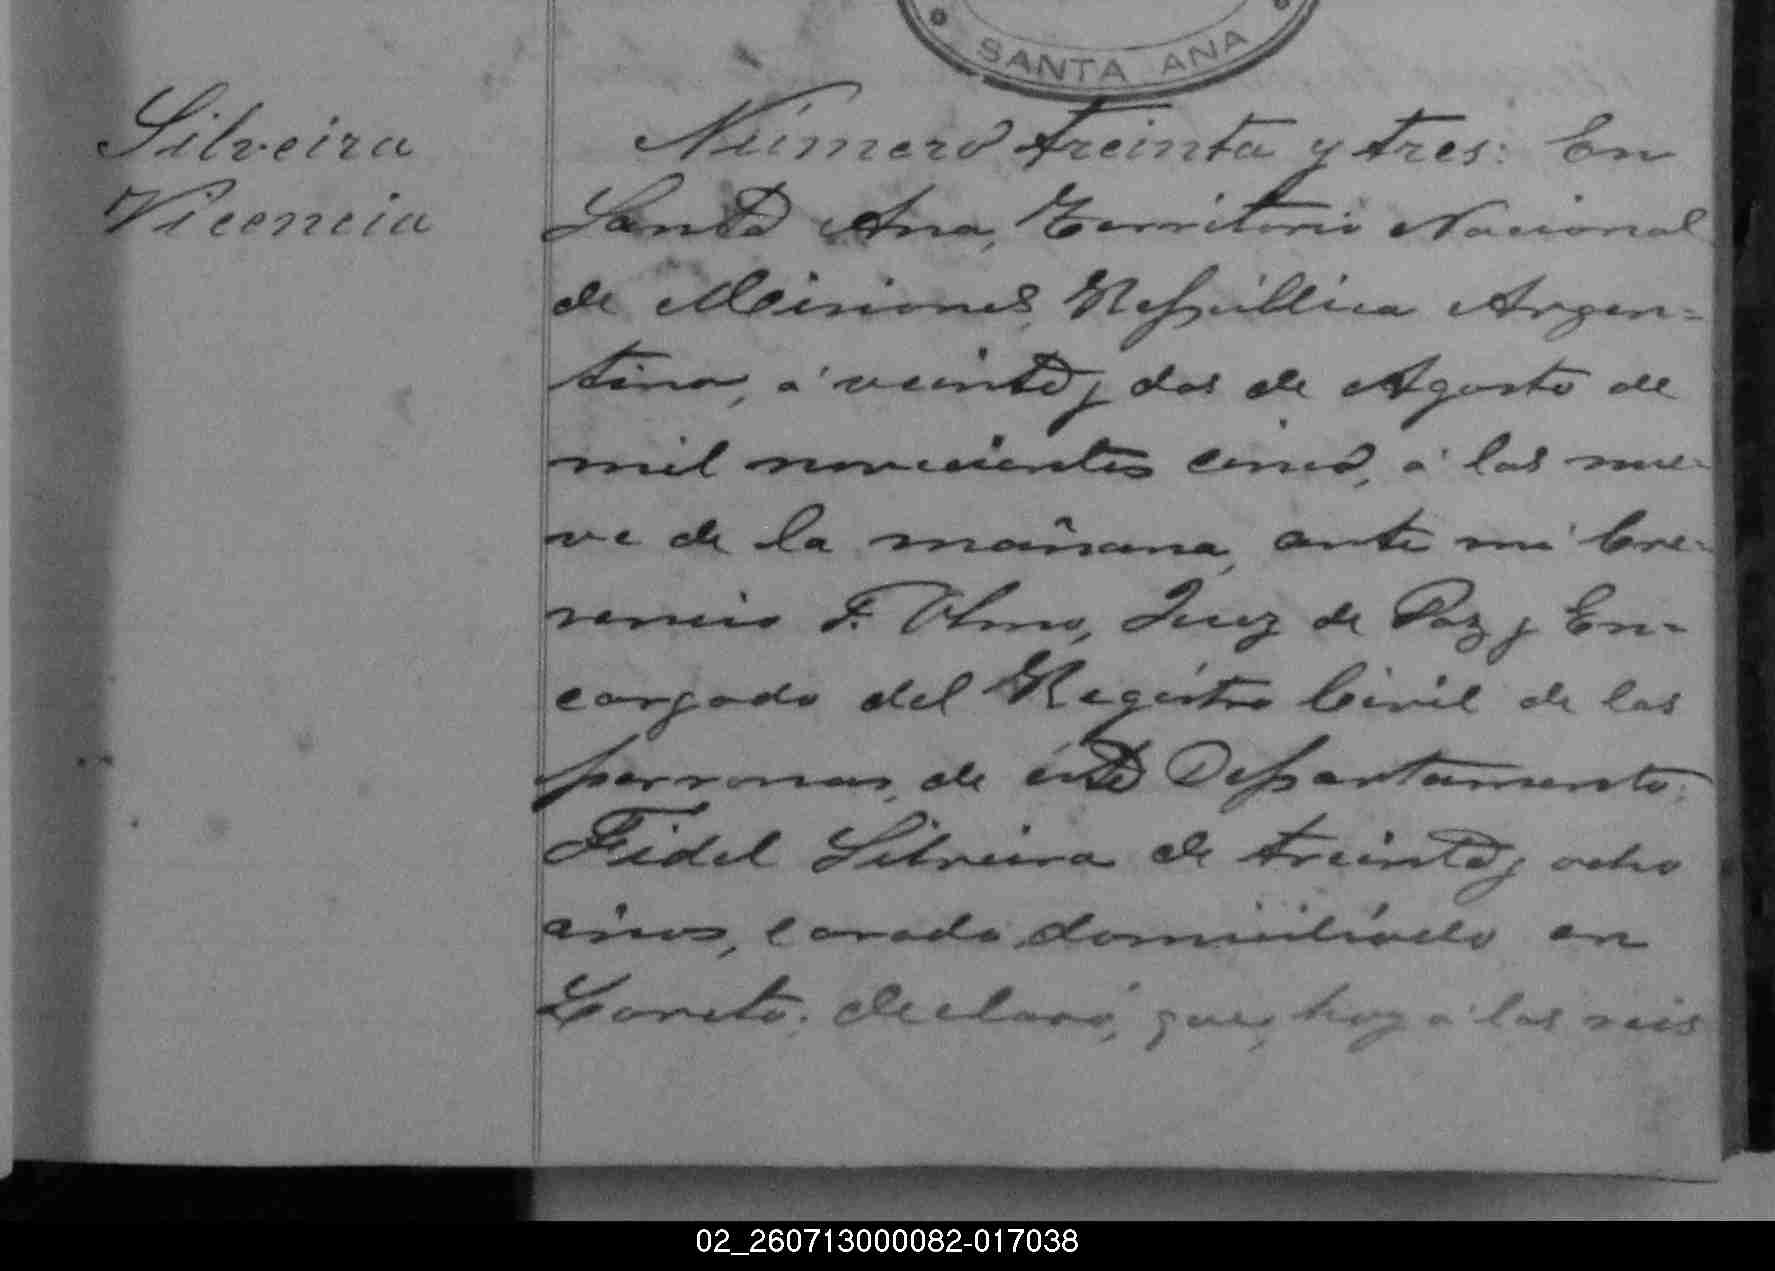 SANTA ANA
Silveira
Vicencia
Número treinta y tres: En
Santa Ana, Territorio Nacional
de Misiones, República Argen-
tina, á veinte y dos de Agosto de
mil novecientos cinco, á las nue-
ve de la mañana, ante mi Cre-
cencio F. Olmo, Juez de Paz y En-
cargado del Registro Civil de las
personas, de éste Departamento.
Fidel Silveira de treinta y ocho
años, casado, domiciliado en
Loreto, declaró, que, hoy á las seis
02_260713000082-017038